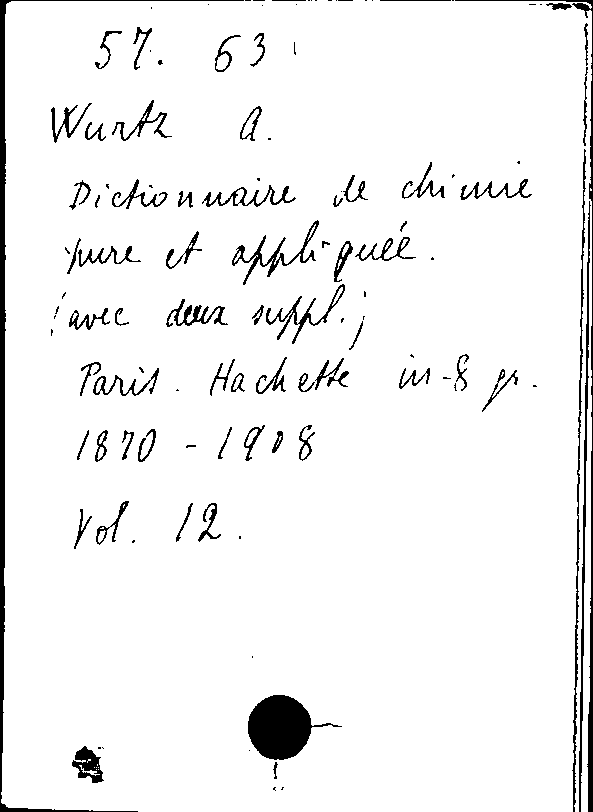 57. 63
Wurtz A.
Dictionnaire de chimie
pure et appliquée.
(avec deux suppl.)
Paris. Hachette in-8 gr.
1870 - 1908
Vol. 12.